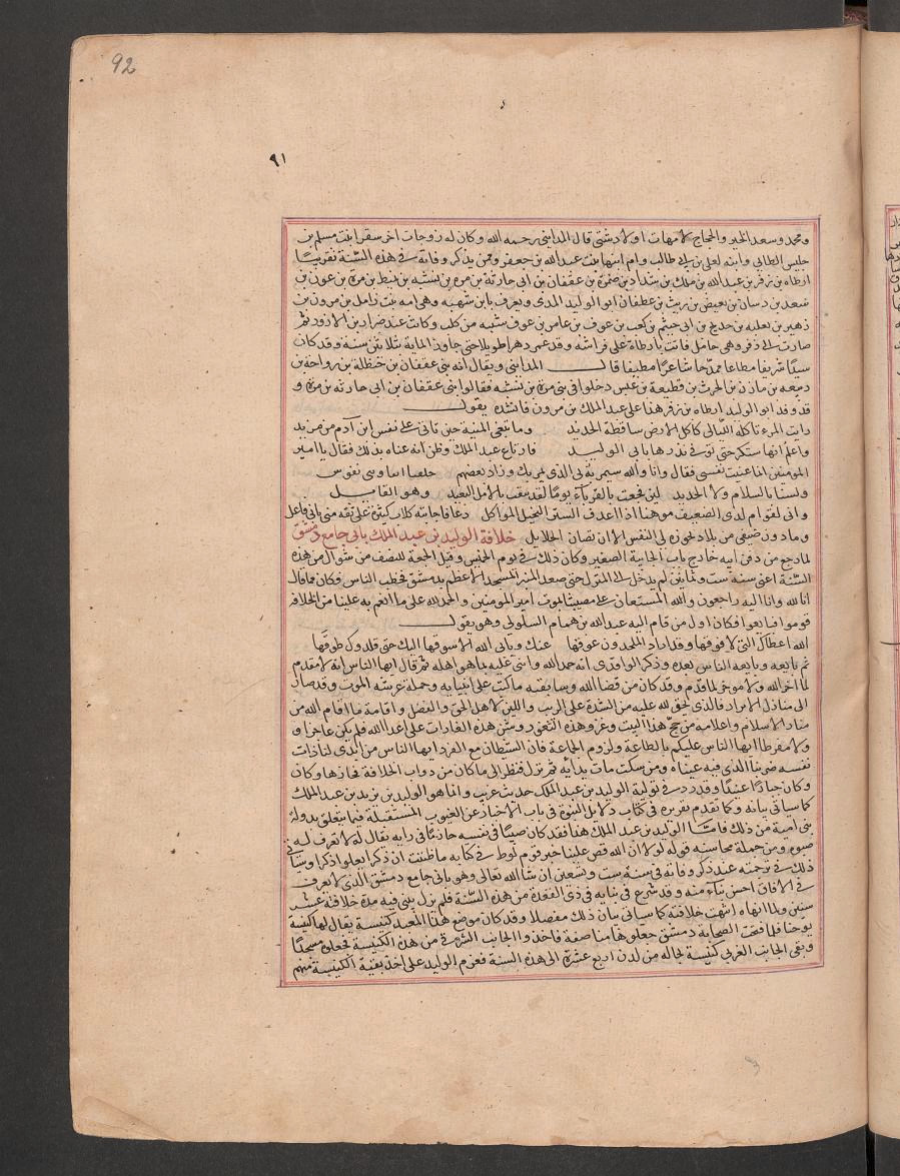 92
٩١
ومحمد وسعد الخير والحجاج لامهات اولاد شتى قال المدايني رحمه الله وكان له زوجات اخر سقرا بنت مسلم بن
حليس الطائي وابنه لعلي بن ابي طالب وام ابيها بنت عبدالله بن جعفر وممن يذكر وفاته في هذه السنة تقريبا
ارطاه بن زفر بن عبدالله بن ملك بن شداد بن ضمرة بن عقفان بن ابي حارثة بن مره بن نشبه بن غيظ بن مرة بن عوف بن
سعد بن دسان بن بغيض بن ريث بن غطفان ابو الوليد المدى ويعرف بابن شهيه وهي امه بنت زامل بن مرون بن
زهير بن ثعلبه بن حديج بن ابي جيثم بن كعب بن عوف بن عامر بن عوف سبيه من كلب وكانت عند ضرار بن الازور ثم
صارت الى زفر وهي حامل فاتت بارطاة على فراشه وقد عمر دهرا طويلا حتى جاوز الماية بثلاثين سنه وقد كان
سيدا شريفا مطاعا ممدحا شاعرا مطبقا قال المدايني ويقال انه بني عقفان بن حنظلة بن رواحة بن
ربيعه بن مازن بن الحرث بن قطيعة بن عبس دخلوا في بني مرة بن نشبه فقالوا بني عقفان بن ابي حارثه بن مره و
قد وفد ابو الوليد ارطاه بن زفر هذا على عبد الملك بن مرون فانشده يقول
رايت المرء تاكله الليالي كاكل الارض ساقطة الحديد وما تبغى المنية حين تاتي على نفس ابن آدم من مزيد
واعلم انها ستكر حتى توفي نذرها بابي الوليد فارتاع عبد الملك وظن انه عناه بذلك فقال يا امير
المومنين انما عنيت نفسي فقال وانا والله سيمر بي الذي يمر بك وزاد بعضهم خلقنا انفسا وبني نفوس
ولسنا بالسلام ولا الحديد لين فجعت بالقرناء يوما لقد متعت بالامل البعيد وهو القايل
واني لقوام لدى الضيف موهنا اذا اغدف الستر البخيل المواكل دعا فاجابته كلاب كثيرة على ثقة مني باني فاعل
وما دون ضيفي من تلاد تحوزه لي النفس الا ان تصان الحلايل خلافة الوليد بن عبد الملك باني جامع دمشق
لما رجع من دفن ابيه خارج باب الجابية الصغير وكان ذلك في يوم الخميس وقيل الجمعة للنصف من شوال من هذه
السنة اعني سنة ست وثمانين لم يدخل الى المنزل حتى صعد المنبر المسجد الاعظم بدمشق فخطب الناس فكان مما قال
انا لله وانا اليه راجعون والله المستعان على مصيبتنا بموت امير المومنين والحمد لله على ما انعم به علينا من الخلافه
قوموا فبايعوا فكان اول من قام اليه عبدالله بن همام السلولي وهو يقول
الله اعطاك التي لا فوقها وقد اراد الملحدون عوقها عنك ويابي الله الا سوقها اليك حتى قلدوك طوقها
ثم بايعه وبايعه الناس بعده وذكر الواقدي انه حمد الله واثنى عليه بما هو اهله ثم قال ايها الناس انه لا مقدم
لما اخر الله ولا موخر لما قدم وقد كان من قضا الله وسابقته ما كتب على انبيايه وحملة عرشه الموت وقد صار
الى منازل الابرار فالذي يحق لله عليه من الشدة على المريب واللين لاهل الحق والفضل واقامة ما اقام الله من
منار الاسلام واعلامه من حج هذا البيت وغزو هذه الثغور وشن هذه الغارات على اعدا الله فلم يكن عاجزا و
ولا مفرطا ايها الناس عليكم بالطاعة ولزوم الجماعة فان الشيطان مع الفرد ايها الناس من ابدى لنا ذات
نفسه ضربنا الذي فيه عيناه ومن سكت مات بدايه ثم نزل فنظر الى ما كان من دواب الخلافة فحازها وكان
وكان جبارا عنيدا وقد ورد في تولية الوليد بن عبد الملك حديث غريب وانما هو الوليد بن يزيد بن عبد الملك
كما سياتي بيانه وكما تقدم تقريره في كتاب دلايل النبوة في باب الاخبار عن الغيوب المستقبلة فيما يتعلق بدولة
بني امية من ذلك فاما الوليد بن عبد الملك هذا فقد كان صينا في نفسه حازما في رايه يقال انه لا تعرف له
صبوه ومن جملة محاسنه قوله لولا ان الله قص علينا خبر قوم لوط في كتابه ما ظننت ان ذكرا يعلوا ذكرا وسياتي
ذلك في ترجمته عند ذكر وفاته في سنه ست وتسعين ان شا الله تعالى وهو باني جامع دمشق الذي لا يعرف
في الافاق احسن بناء منه وقد شرع في بنايه في ذي القعدة من هذه السنة فلم يزل يبني فيه مدة خلافته عشر
سنين ولما انهاه انتهت خلافته كما سياتي بيان ذلك مفصلا وقد كان موضع هذا المعبد كنيسة يقال لها كنيسة
يوحنا فلما فتحت الصحابة دمشق جعلوها مناصفة فاخذوا الجانب الشرقي من هذه الكنيسة فجعلوه مسجدا
وبقي الجانب الغربي كنيسة بحاله من لدن اربع عشرة الى هذه السنة فعزم الوليد على اخذ بقية الكنيسة منهم